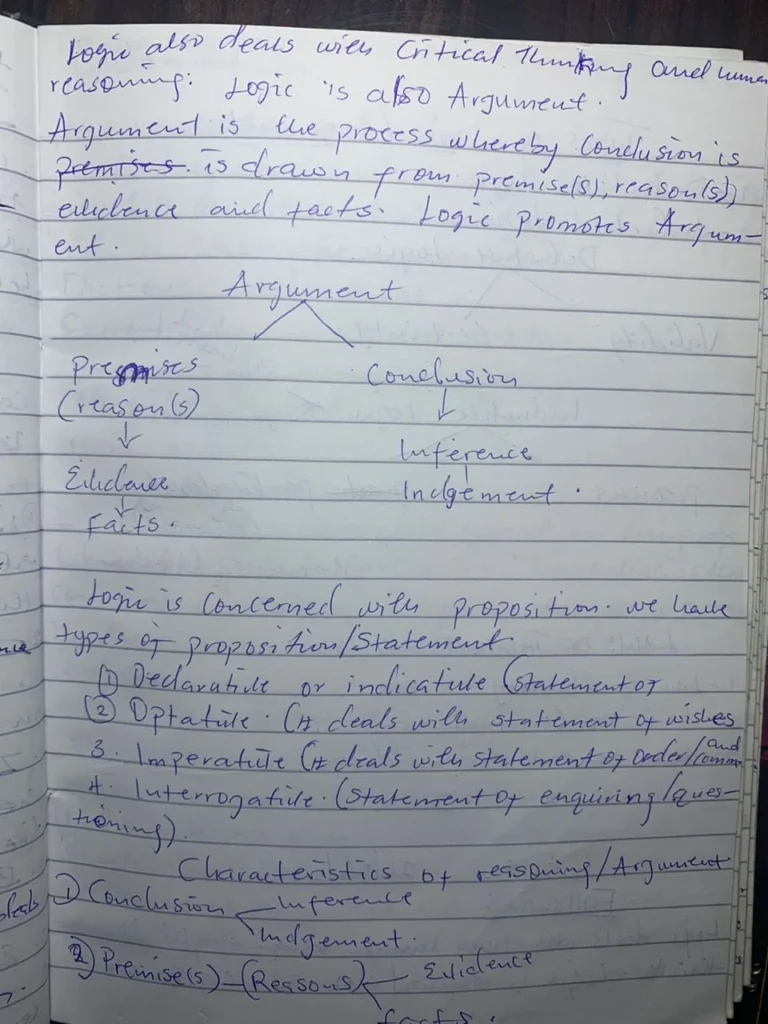 Logic also deals with Critical Thinking and human
reasoning: Logic is also Argument.
Argument is the process whereby Conclusion is
premises. is drawn from premise(s), reason(s),
evidence and facts. Logic promotes Argum-
ent.
Argument
Premises
Conclusion
(reason(s)
Inference
Evidence
Judgement.
Facts.
Logic is concerned with proposition. we have
types of proposition/Statement
① Declarative or indicative (statement of
② Optative. (It deals with statement of wishes
3. Imperative (It deals with statement of order/command
4. Interrogative. (Statement of enquiring/ques-
tioning).
Characteristics of reasoning/Argument
① Conclusion Inference
Judgement.
② Premise(s) - (Reasons) Evidence
facts.